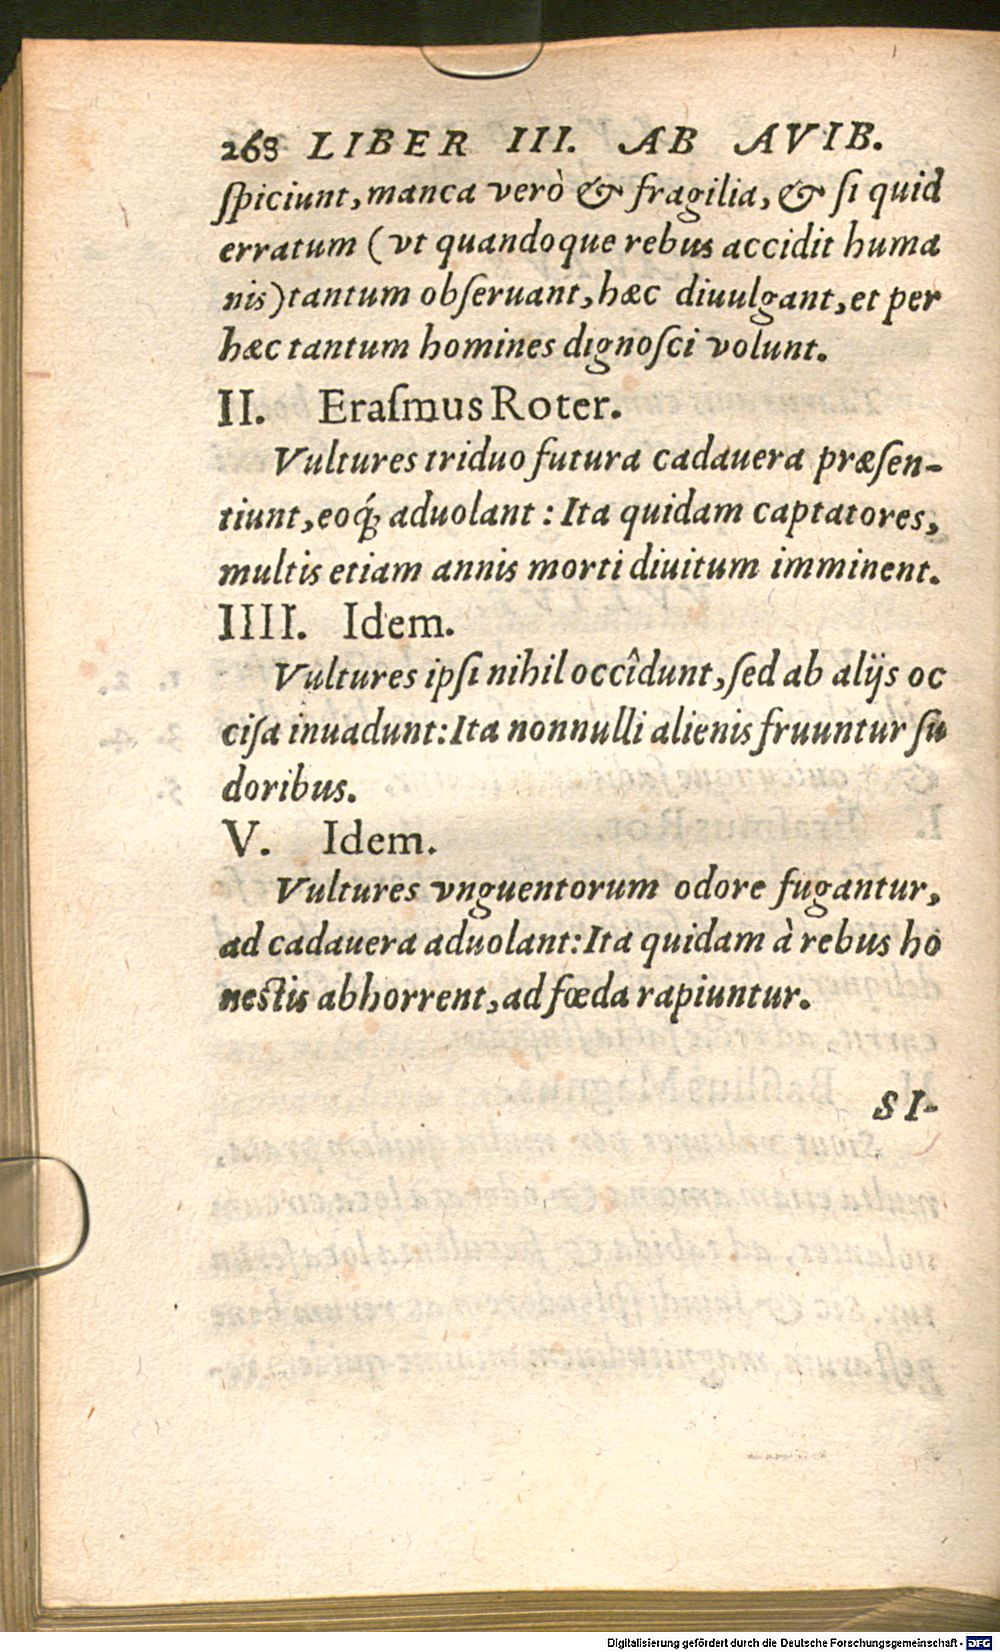 268 LIBER III. AB AVIB.
ſpiciunt, manca verò & fragilia, & ſi quid
erratum (vt quandoque rebus accidit huma
nis) tantum obſeruant, hæc diuulgant, et per
hæc tantum homines dignoſci volunt.
II. Eraſmus Roter.
Vultures triduo futura cadauera præſen-
tiunt, eoq́; aduolant: Ita quidam captatores,
multis etiam annis morti diuitum imminent.
IIII. Idem.
Vultures ipſi nihil occîdunt, ſed ab alijs oc
ciſa inuadunt: Ita nonnulli alienis fruuntur ſu
doribus.
V. Idem.
Vultures vnguentorum odore fugantur,
ad cadauera aduolant: Ita quidam à rebus ho
neſtis abhorrent, ad fœda rapiuntur.
SI-
Digitalisierung gefördert durch die Deutsche Forschungsgemeinschaft - DFG